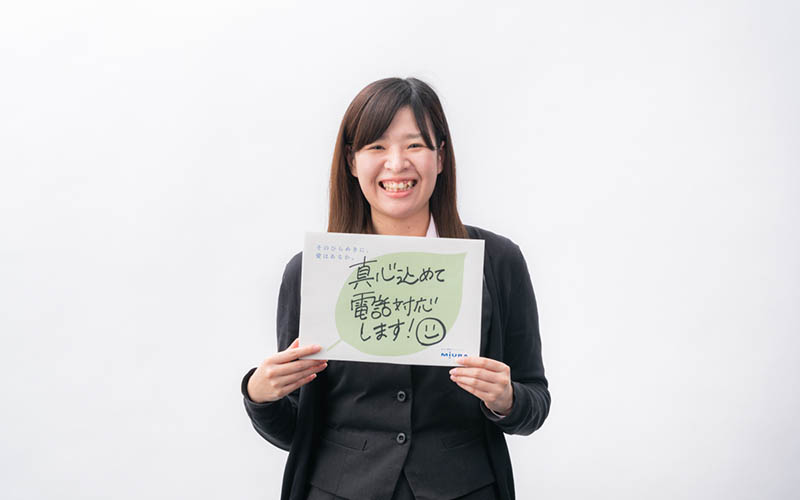 そのひらめきに、
愛はあるか。
真心込めて
電話対応
します!
MIURA